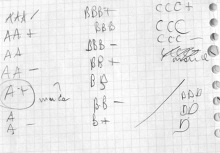 AAA
AA +
AA
AA -
A +
A
A -
BBB +
BBB
BBB -
BB +
BB
BB -
B +
CCC +
CCC
CCC -
DDD
DD
D